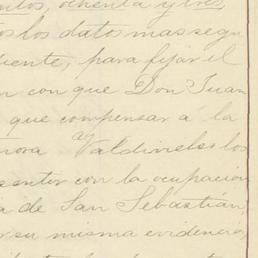 ntos, ochenta y tres
os los datos mas segu
diente, para fijar el
n con que Don Juan
que compensar á la
nora Valdivieso los
sentir con la ocupacion
a de San Sebastián,
r su misma evidencia,